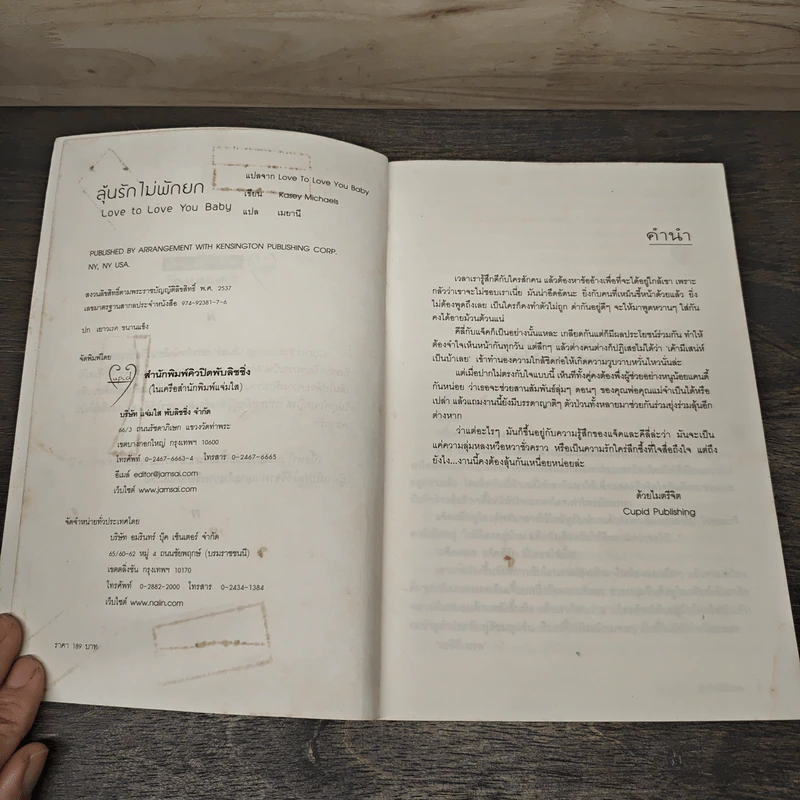 ลุ้นรักไม่พักยก
Love to Love You Baby
แปลจาก Love To Love You Baby
เขียน Kasey Michaels
แปล เมยานี
PUBLISHED BY ARRANGEMENT WITH KENSINGTON PUBLISHING CORP.
NY, NY USA.
สงวนลิขสิทธิ์ตามพระราชบัญญัติลิขสิทธิ์ พ.ศ. 2537
เลขมาตรฐานสากลประจำหนังสือ 974-92381-7-6
ปก เยาวเรศ ชนานแข็ง
จัดพิมพ์โดย
Cupid
สำนักพิมพ์คิวปิดพับลิชชิ่ง
(ในเครือสำนักพิมพ์แจ่มใส)
บริษัท แจ่มใส พับลิชชิ่ง จำกัด
66/3 ถนนรัชดาภิเษก แขวงวัดท่าพระ
เขตบางกอกใหญ่ กรุงเทพฯ 10600
โทรศัพท์ 0-2467-6663-4 โทรสาร 0-2467-6665
อีเมล์ editor@jamsai.com
เว็บไซต์ www.jamsai.com
จัดจำหน่ายทั่วประเทศโดย
บริษัท อมรินทร์ บุ๊ค เซ็นเตอร์ จำกัด
65/60-62 หมู่ 4 ถนนชัยพฤกษ์ (บรมราชชนนี)
เขตตลิ่งชัน กรุงเทพฯ 10170
โทรศัพท์ 0-2882-2000 โทรสาร 0-2434-1384
เว็บไซต์ www.naiin.com
ราคา 189 บาท
คำนำ
เวลาเรารู้สึกดีกับใครสักคน แล้วต้องหาข้ออ้างเพื่อที่จะได้อยู่ใกล้เขา เพราะ
กลัวว่าเขาจะไม่ชอบเราเนี่ย มันน่าอึดอัดนะ ยิ่งกับคนที่เหม็นขี้หน้าด้วยแล้ว ยิ่ง
ไม่ต้องพูดถึงเลย เป็นใครก็คงทำตัวไม่ถูก ด่ากันอยู่ดีๆ จะให้มาพูดหวานๆ ใส่กัน
คงได้อายม้วนต้วนแน่
คีลี่กับแจ็คก็เป็นอย่างนั้นแหละ เกลียดกันแต่ก็มีผลประโยชน์ร่วมกัน ทำให้
ต้องจำใจเห็นหน้ากันทุกวัน แต่ลึกๆ แล้วต่างคนต่างก็ปฏิเสธไม่ได้ว่า 'เค้ามีเสน่ห์
เป็นบ้าเลย' เช้าทำนองความใกล้ชิดก่อให้เกิดความวูบวาบหวั่นไหวนั่นล่ะ
แต่เมื่อปากไม่ตรงกับใจแบบนี้ เห็นทีทั้งคู่คงต้องพึ่งผู้ช่วยอย่างหนูน้อยแคนดี้
กันหน่อย ว่าเธอจะช่วยสานสัมพันธ์ลุ่มๆ ดอนๆ ของคุณพ่อคุณแม่จำเป็นได้หรือ
เปล่า แล้วแถมงานนี้ยังมีบรรดาญาติๆ ตัวป่วนทั้งหลายมาช่วยกันร่วมยุ่งร่วมลุ้นอีก
ต่างหาก
ว่าแต่อะไรๆ มันก็ขึ้นอยู่กับความรู้สึกของแจ็คและคีลี่ล่ะว่า มันจะเป็น
แค่ความลุ่มหลงหวือหวาชั่วคราว หรือเป็นความรักใคร่ลึกซึ้งที่ใจสื่อถึงใจ แต่ถึง
ยังไง...งานนี้คงต้องลุ้นกันเหนื่อยหน่อยล่ะ
ด้วยไมตรีจิต
Cupid Publishing